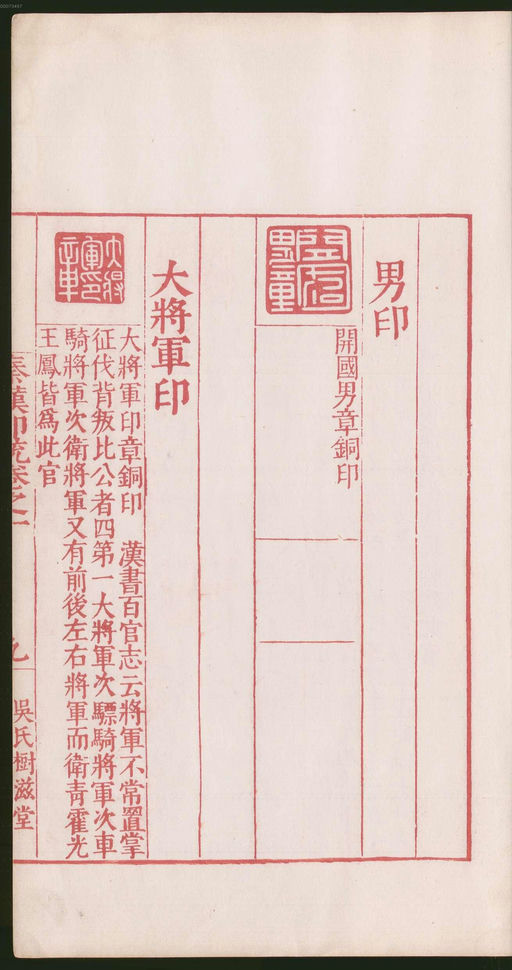 男印
開國男章銅印
大將軍印
大將軍印章銅印　漢書百官志云將軍不常置掌
征伐背叛比公者四第一大將軍次驃騎將軍次車
騎將軍次衛將軍又有前後左右將軍而衛青霍光
王鳳皆爲此官
秦漢印統卷之一
九
吳氏樹滋堂
00073487